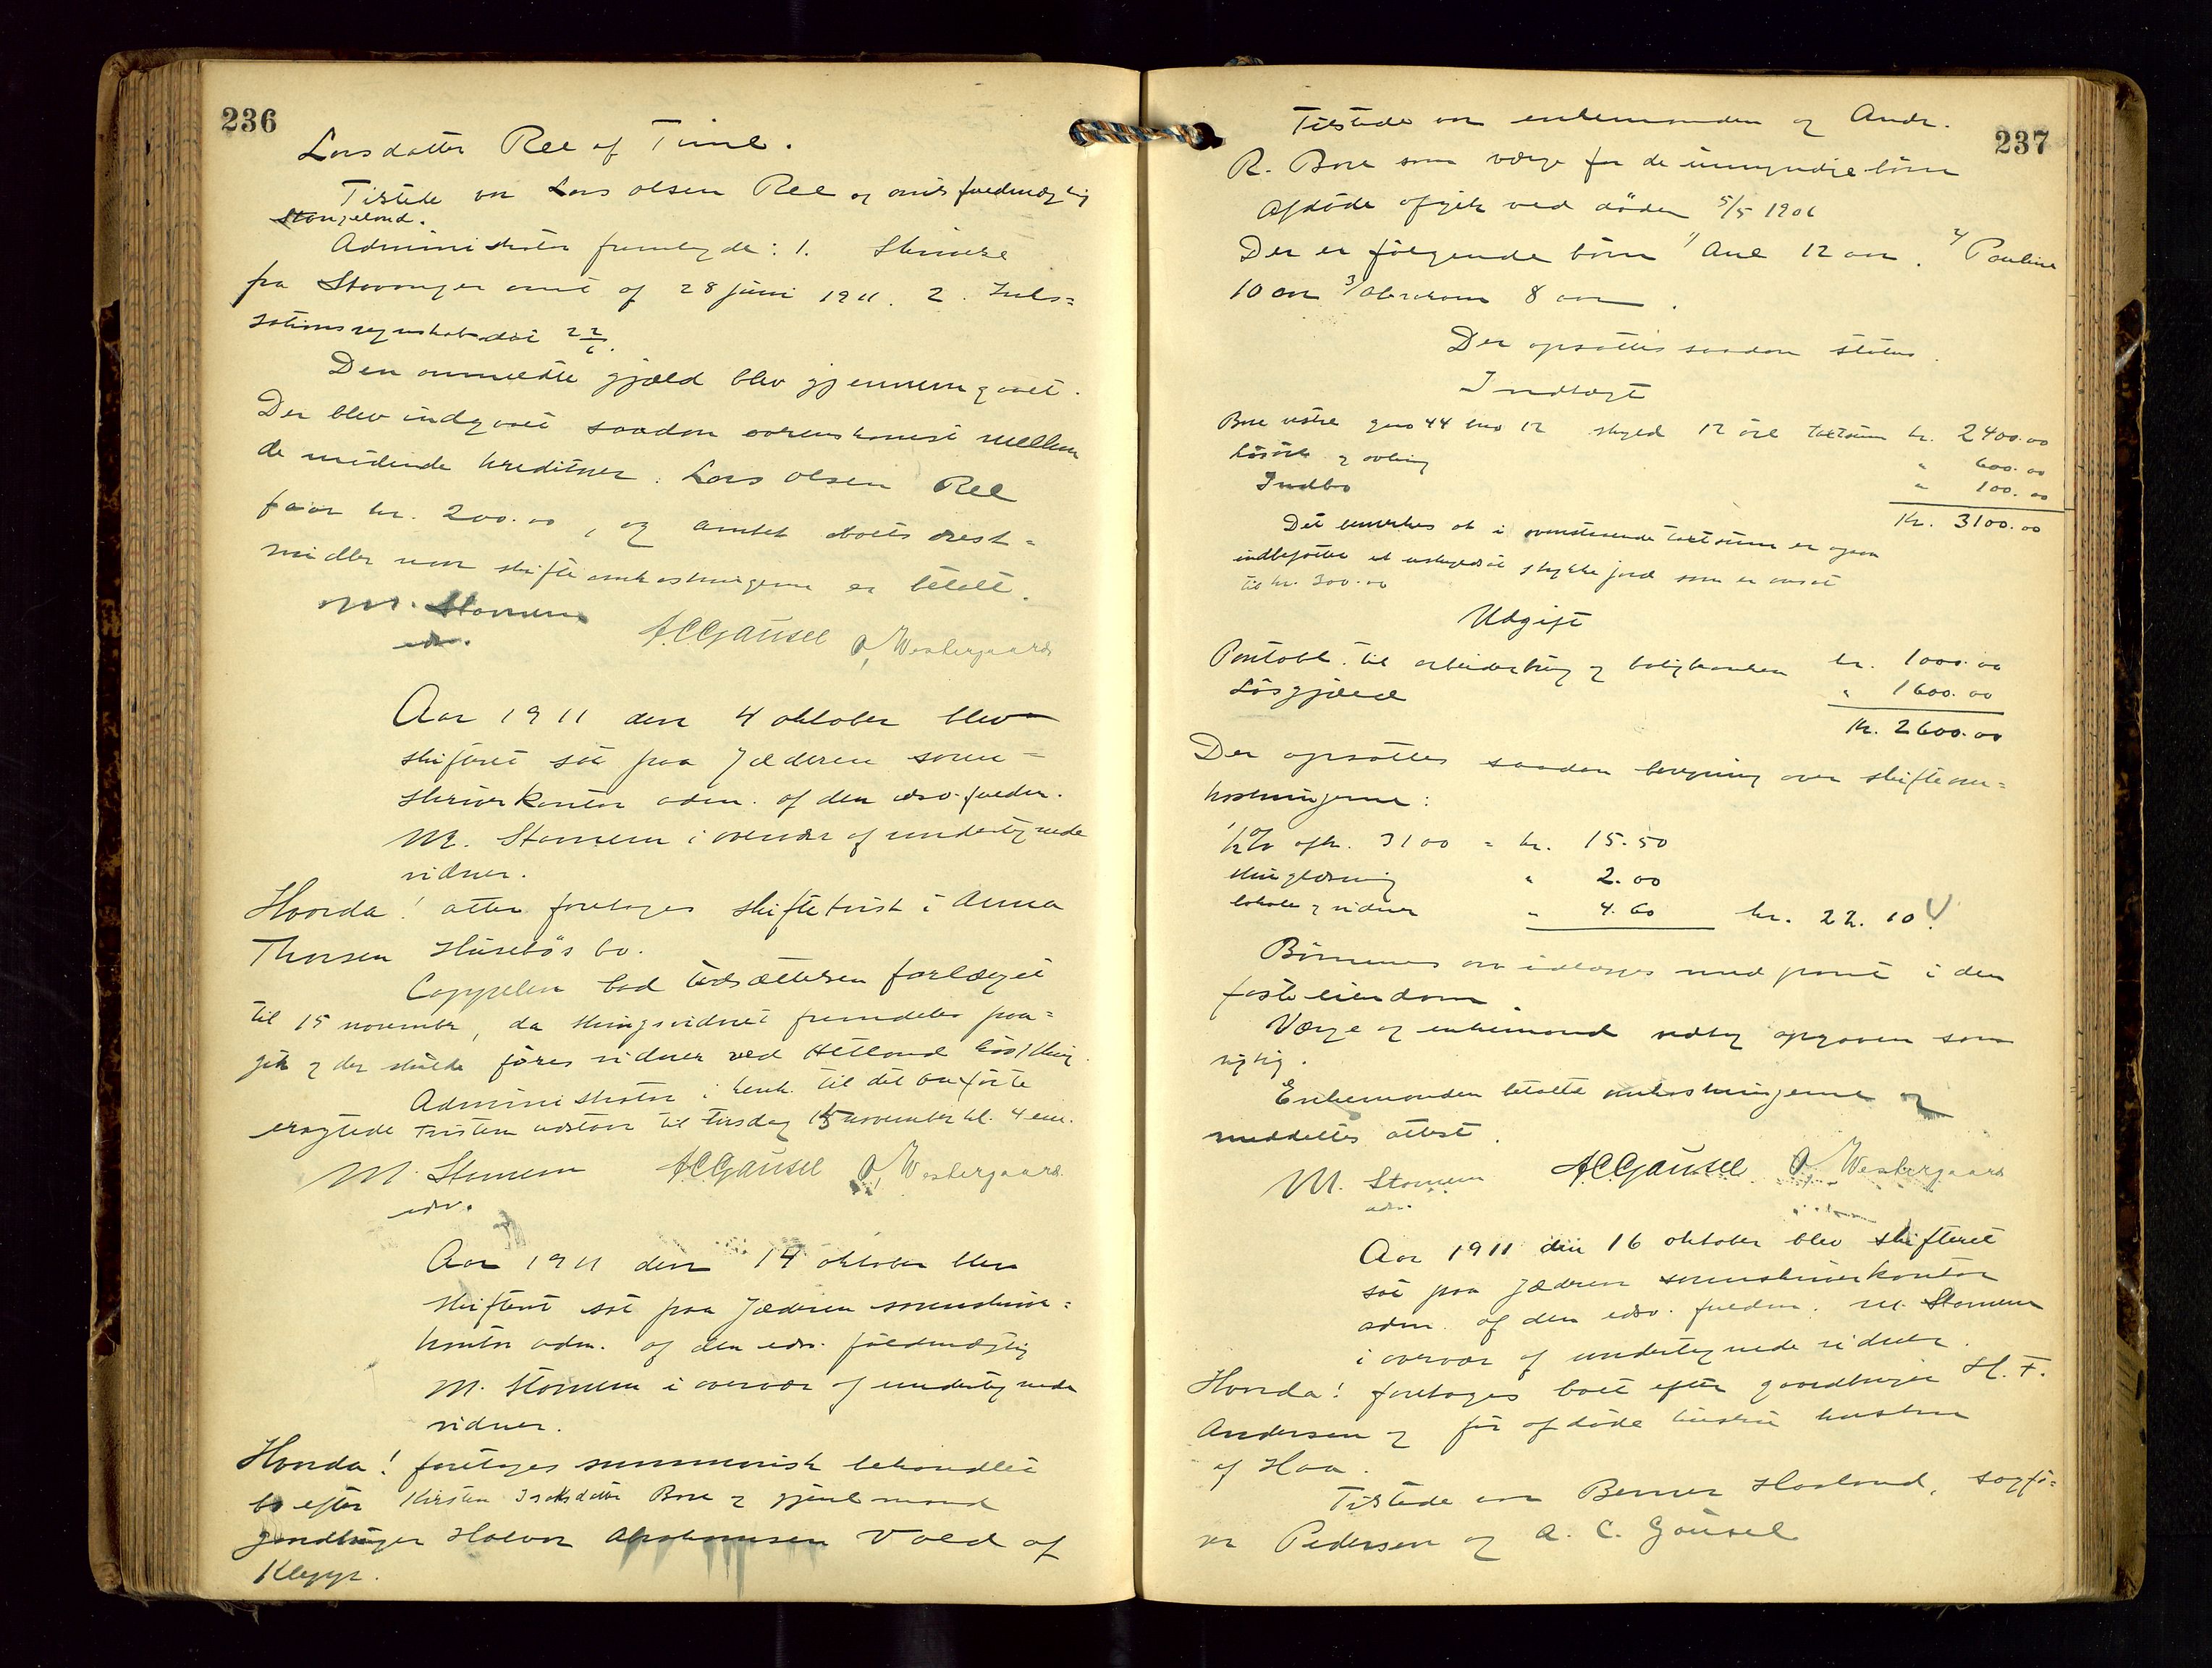 236
Larsdatter Ree af Time.
Tilstede var Lars Olsen Ree og amtsfuldmægtig
Stangeland.
Administrator fremlagde: 1. Skrivelse
fra Stavanger amt af 28 juni 1911. 2.
dat 22/6.
Den anmeldte gjæld blev gjennemgaaet.
Der blev indgaaet saadan overenskomst mellem
de mødende kreditorer. Lars Olsen Ree
faar kr. 200.00, og amtet boets rest=
midler naar skifteomkostningerne er betalt.
M. Stornem A.C. Gausel O. Westergaard
edsv.
Aar 1911 den 4 oktober blev
skifteret sat paa Jæderen soren=
skriverkontor adm. af den edsv. fuldm.
M. Stornem i overvær af undertegnede
vidner.
Hvorda! atter foretages skiftetvist i Anna
Thorsen Husebøs bo.
Cappelen bad utsættelsen forlænget
til 15 november, da tingsvidnet fremdeles paa=
gik og der skulde føres vidner ved Hetland
Administrator i henh. til det anførte
eragtede Tvisten udstaar til tirsdag 15 november kl. 4 em.
M. Stornem A.C. Gausel O. Westergaard
edsv.
Aar 1911 den 14 oktober blev
skifteret sat paa Jæderen sorenskriver=
kontor adm. af den edsv. fuldmægtig
M. Stornem i overvær af undertegnede
vidner.
Hvorda! foretages summarisk behandlet
bo efter Kirsten Isaksdatter Bore og gjenl. mand
gaardbruger Halvor Abrahamsen Vold af
Klepp.
237
Tilstede var enkemanden og Andr.
R. Bore som værge for de umyndige børn
Afdøde afgik ved døden 5/5 1906
Der er følgende børn 1/ Ane 12 aar. 2/ Pauline
10 aar 3/ Abraham 8 aar.
Der opsattes saadan status.
Indtægt
Bore østre gno 44 bno 12 skyld 12 øre taxtsum kr. 2400.00
Løsøre og avling " 600.00
Indbo " 100.00
Kr. 3100.00
Det bemerkes at i ovenstaaende taxtsum er ogsaa
indbefattet et uskyldsat stykke jord som er ansat
til kr. 300.00
Udgift
Panteobl. til arbeiderbrug og boligbanken kr. 1000.00
Løsgjæld " 1600.00
Kr. 2600.00
Der opsattes saadan beregning over skifteom=
kostningerne:
1/2 % af kr. 3100 = kr. 15.50
tinglæsning " 2.00
lokale og vidner " 4.60 kr. 22.10
Børnenes arv udlægges med pant i den
faste eiendom.
Værge og enkemand vedtog opgaven som
rigtig.
Enkemanden betalte omkostningerne og
meddeltes attest.
M. Stornem A.C. Gausel O. Westergaard
edsv.
Aar 1911 den 16 oktober blev skifteret
sat paa Jæderen sorenskriverkontor
adm. af den edsv. fuldm. M. Stornem
i overvær af undertegnede vidner.
Hvorda! foretages boet efter gaardbruger H. F.
Andersen og før afdøde hustru
af Haa.
Tilstede var Berner Haaland, sagfø=
rer Pedersen og A. C. Gausel